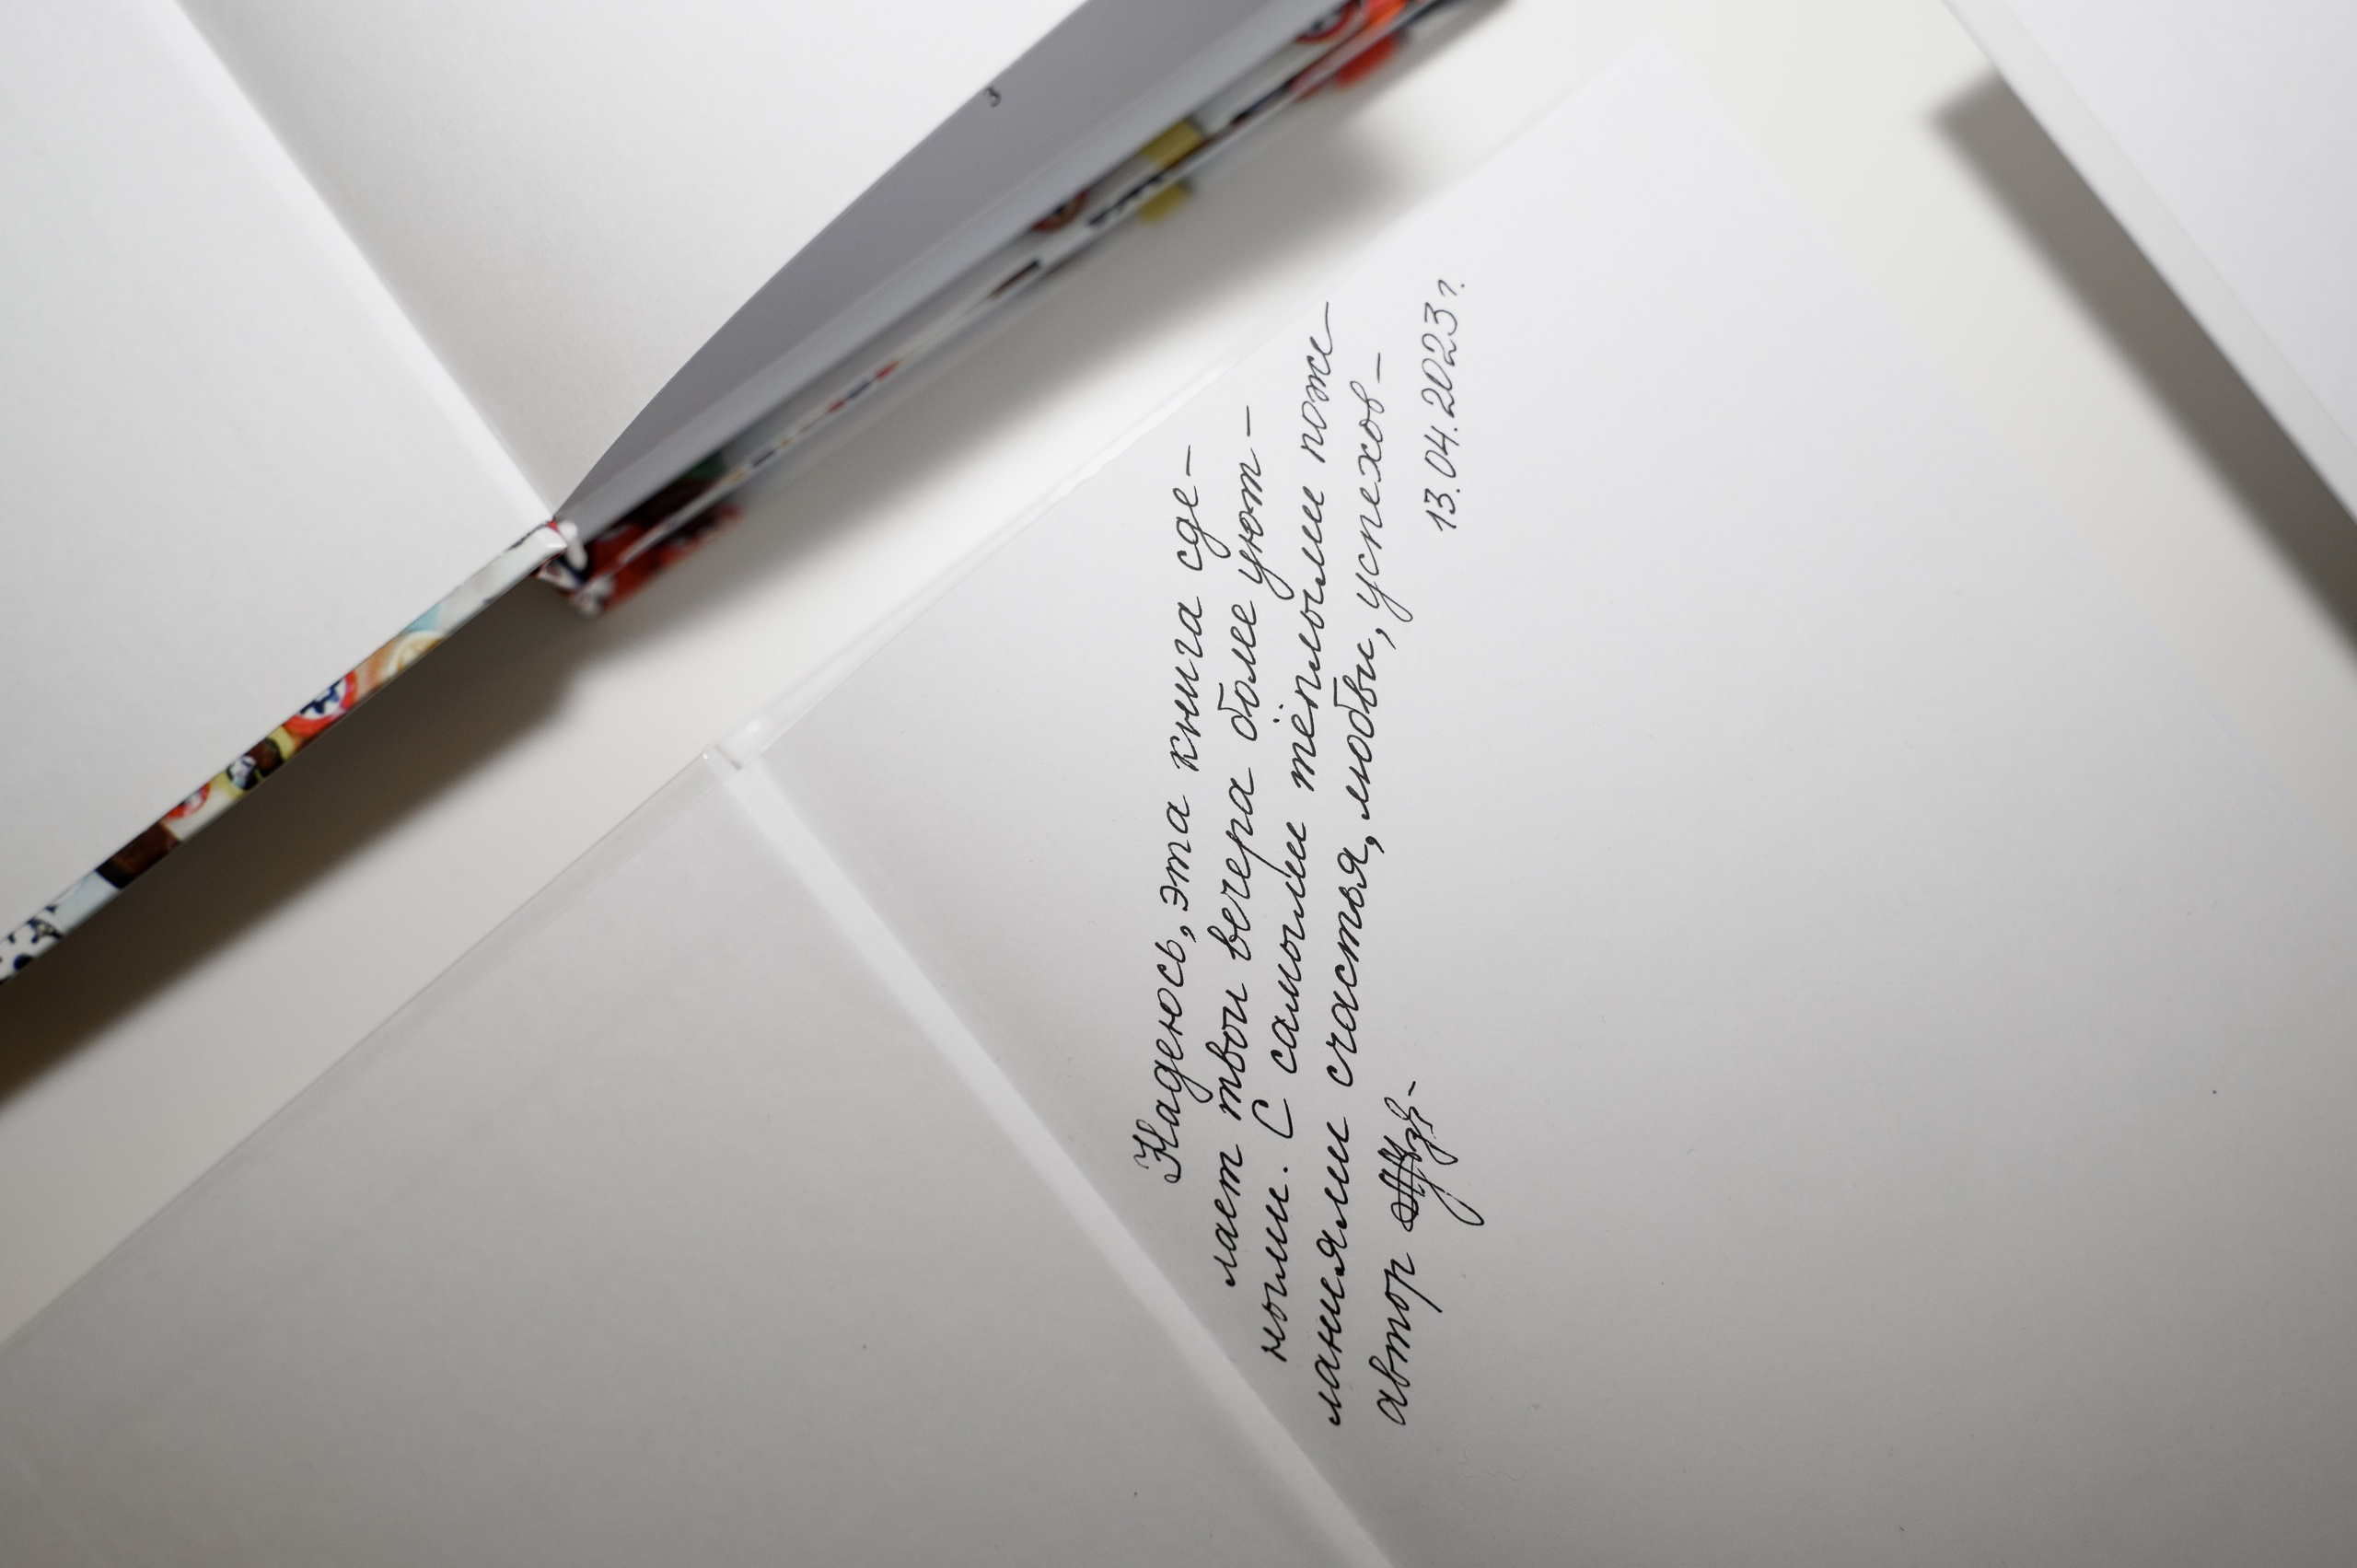 Надеюсь, эта книга сде-
лает твои вечера более уют-
ными. С самыми тёплыми поже-
ланиями счастья, любви, успехов -
автор
13.04.2023 г.
3